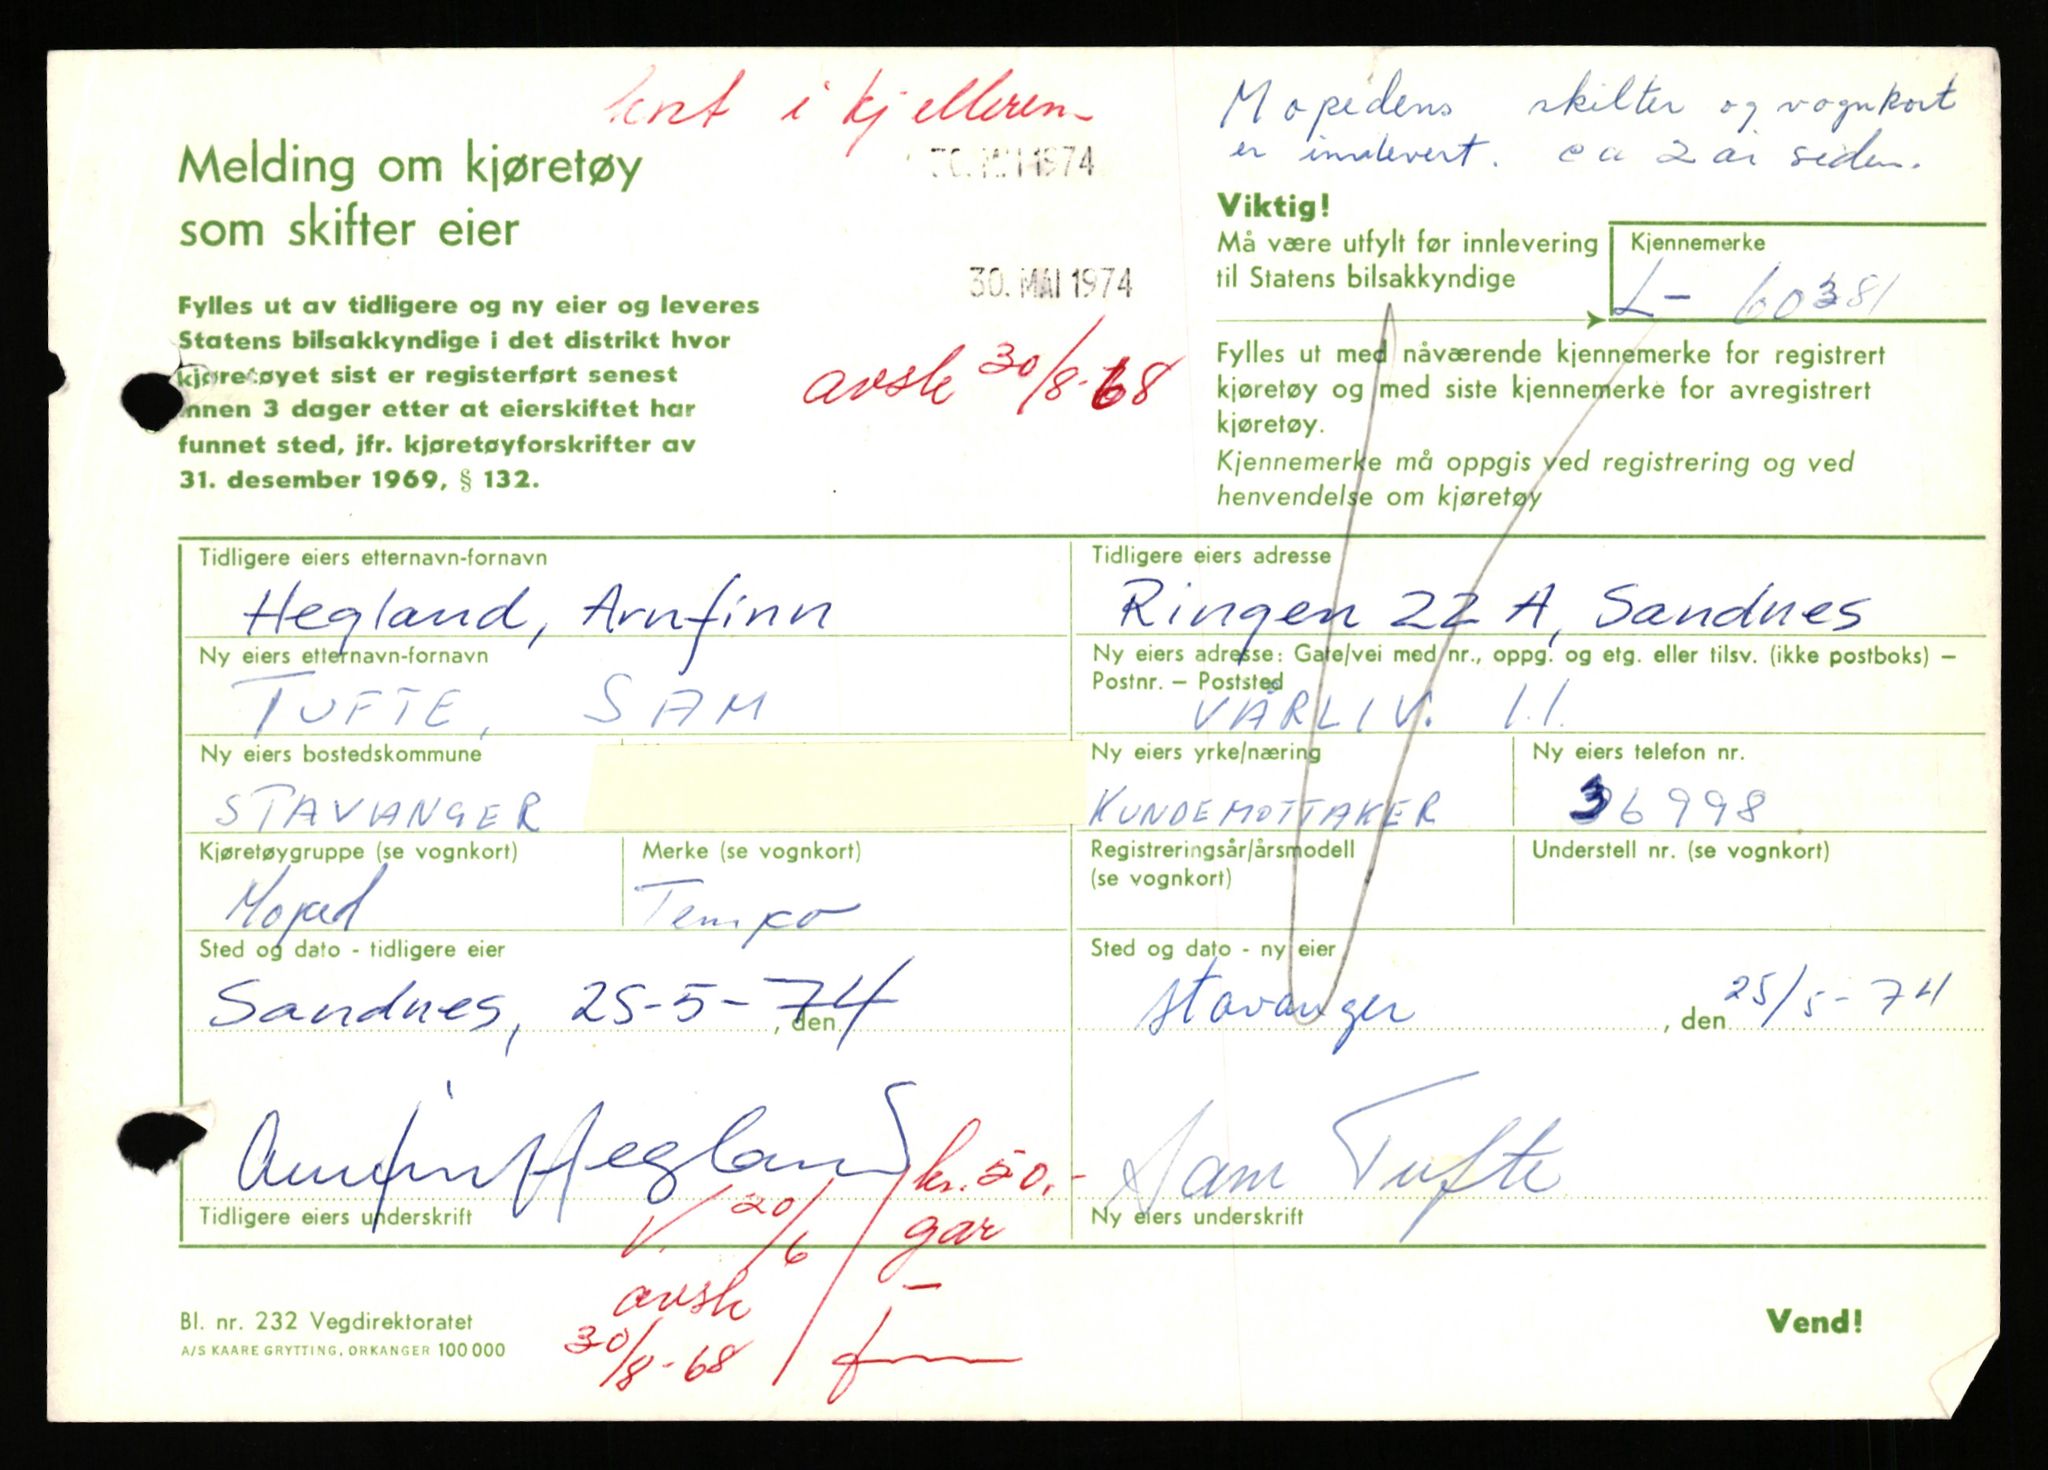 kort i kjelleren
Mopedens skilter og vognkort
er innlevert. ca 2 år siden.
Melding om kjøretøy
som skifter eier
30. MAI 1974
30. MAI 1974
avsk 30/8-68
Viktig!
Må være utfylt før innlevering
til Statens bilsakkyndige
Kjennemerke
L- 60381
Fylles ut av tidligere og ny eier og leveres
Statens bilsakkyndige i det distrikt hvor
kjøretøyet sist er registerført senest
innen 3 dager etter at eierskiftet har
funnet sted, jfr. kjøretøyforskrifter av
31. desember 1969, § 132.
Fylles ut med nåværende kjennemerke for registrert
kjøretøy og med siste kjennemerke for avregistrert
kjøretøy.
Kjennemerke må oppgis ved registrering og ved
henvendelse om kjøretøy
Tidligere eiers etternavn-fornavn
Hegland, Arnfinn
Tidligere eiers adresse
Ringen 22 A, Sandnes
Ny eiers etternavn-fornavn
TUFTE, SAM
Ny eiers adresse: Gate/vei med nr., oppg. og etg. eller tilsv. (ikke postboks) –
Postnr. – Poststed
VÅRLIV. 11.
Ny eiers bostedskommune
STAVANGER
Ny eiers yrke/næring
KUNDEMOTTAKER
Ny eiers telefon nr.
36998
Kjøretøygruppe (se vognkort)
Moped
Merke (se vognkort)
Tempo
Registreringsår/årsmodell
(se vognkort)
Understell nr. (se vognkort)
Sted og dato - tidligere eier
Sandnes, 25-5-74
, den
Sted og dato - ny eier
Stavanger , den 25/5-74
Arnfinn Hegland
Tidligere eiers underskrift
Sam Tufte
Ny eiers underskrift
kr. 50,-
gar
V. 20/6
avsk
30/8-68
Bl. nr. 232 Vegdirektoratet
A/S KAARE GRYTTING, ORKANGER 100 000
Vend!